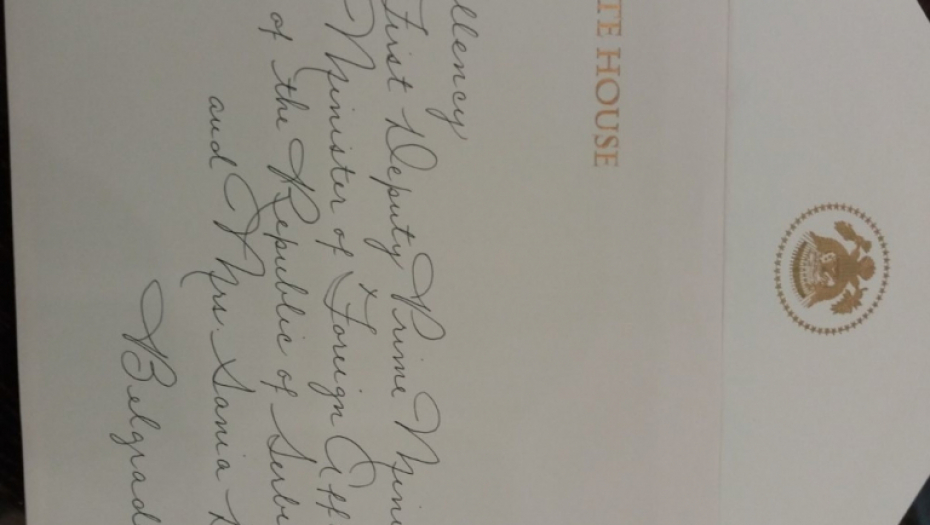 TE HOUSE
llency
First Deputy Prime Mini
Minister of Foreign Aff
of the Republic of Serbi
and Mrs. Sania
Belgrad